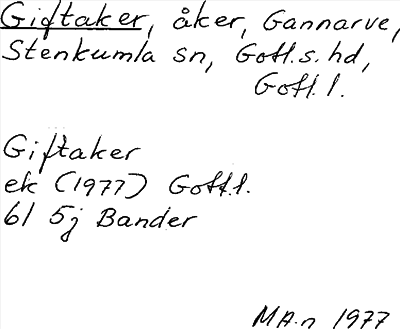 Giftaker, åker, Gannarve,
Stenkumla sn, Gotl.s. hd,
Gotl. l.
Giftaker
ek (1977) Gotl.l.
6I 5j Bander
MA.n 1977